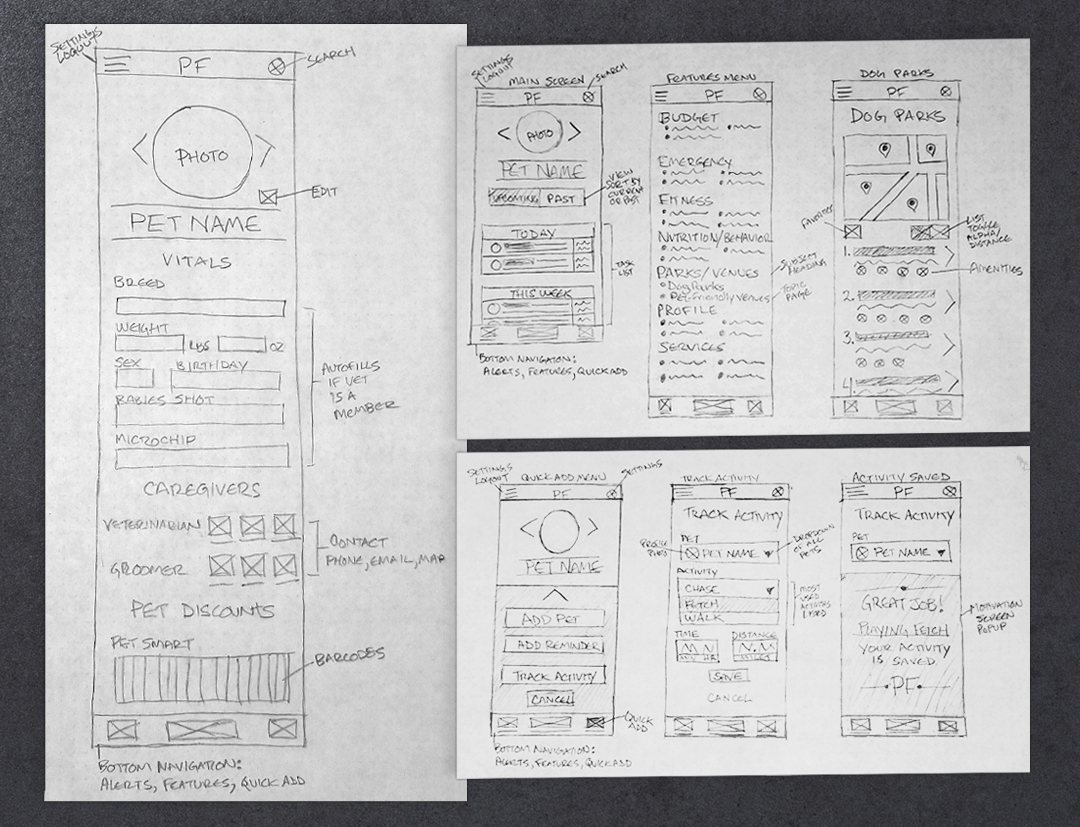 SETTINGS
LOGOUT
PF
SEARCH
PHOTO
EDIT
PET NAME
VITALS
BREED
WEIGHT
LBS
OZ
SEX
BIRTHDAY
RABIES SHOT
MICROCHIP
AUTOFILLS
IF VET
IS A
MEMBER
CAREGIVERS
VETERINARIAN
GROOMER
CONTACT
PHONE, EMAIL, MAP
PET DISCOUNTS
PET SMART
BARCODES
BOTTOM NAVIGATION:
ALERTS, FEATURES, QUICK ADD
SETTINGS
LOGOUT
MAIN SCREEN
SEARCH
PF
PHOTO
PET NAME
UPCOMING
PAST
VIEW
SORT BY
CURRENT
OR PAST
TODAY
THIS WEEK
TASK
LIST
BOTTOM NAVIGATION:
ALERTS, FEATURES, QUICK ADD
FEATURES MENU
PF
BUDGET
EMERGENCY
FITNESS
NUTRITION/BEHAVIOR
PARKS/VENUES
Dog Parks
Pet-friendly venues
PROFILE
SERVICES
SUBJECT
HEADING
TOPIC
PAGE
DOG PARKS
PF
DOG PARKS
FAVORITE
LIST
TOGGLE
ALPHA/
DISTANCE
1.
AMENITIES
2.
3.
4.
SETTINGS
LOGOUT
QUICK ADD MENU
SETTINGS
PF
PET NAME
ADD PET
ADD REMINDER
TRACK ACTIVITY
CANCEL
QUICK
ADD
BOTTOM NAVIGATION:
ALERTS, FEATURES, QUICK ADD
TRACK ACTIVITY
PF
TRACK ACTIVITY
PET
PROFILE
PET NAME
DROPDOWN
OF ALL
PETS
ACTIVITY
CHASE
FETCH
WALK
MOST
USED
TIME
DISTANCE
SAVE
CANCEL
ACTIVITY SAVED
PF
TRACK ACTIVITY
PET
PET NAME
GREAT JOB!
PLAYING FETCH
YOUR ACTIVITY
IS SAVED.
PF
MOTIVATION
SCREEN
POPUP